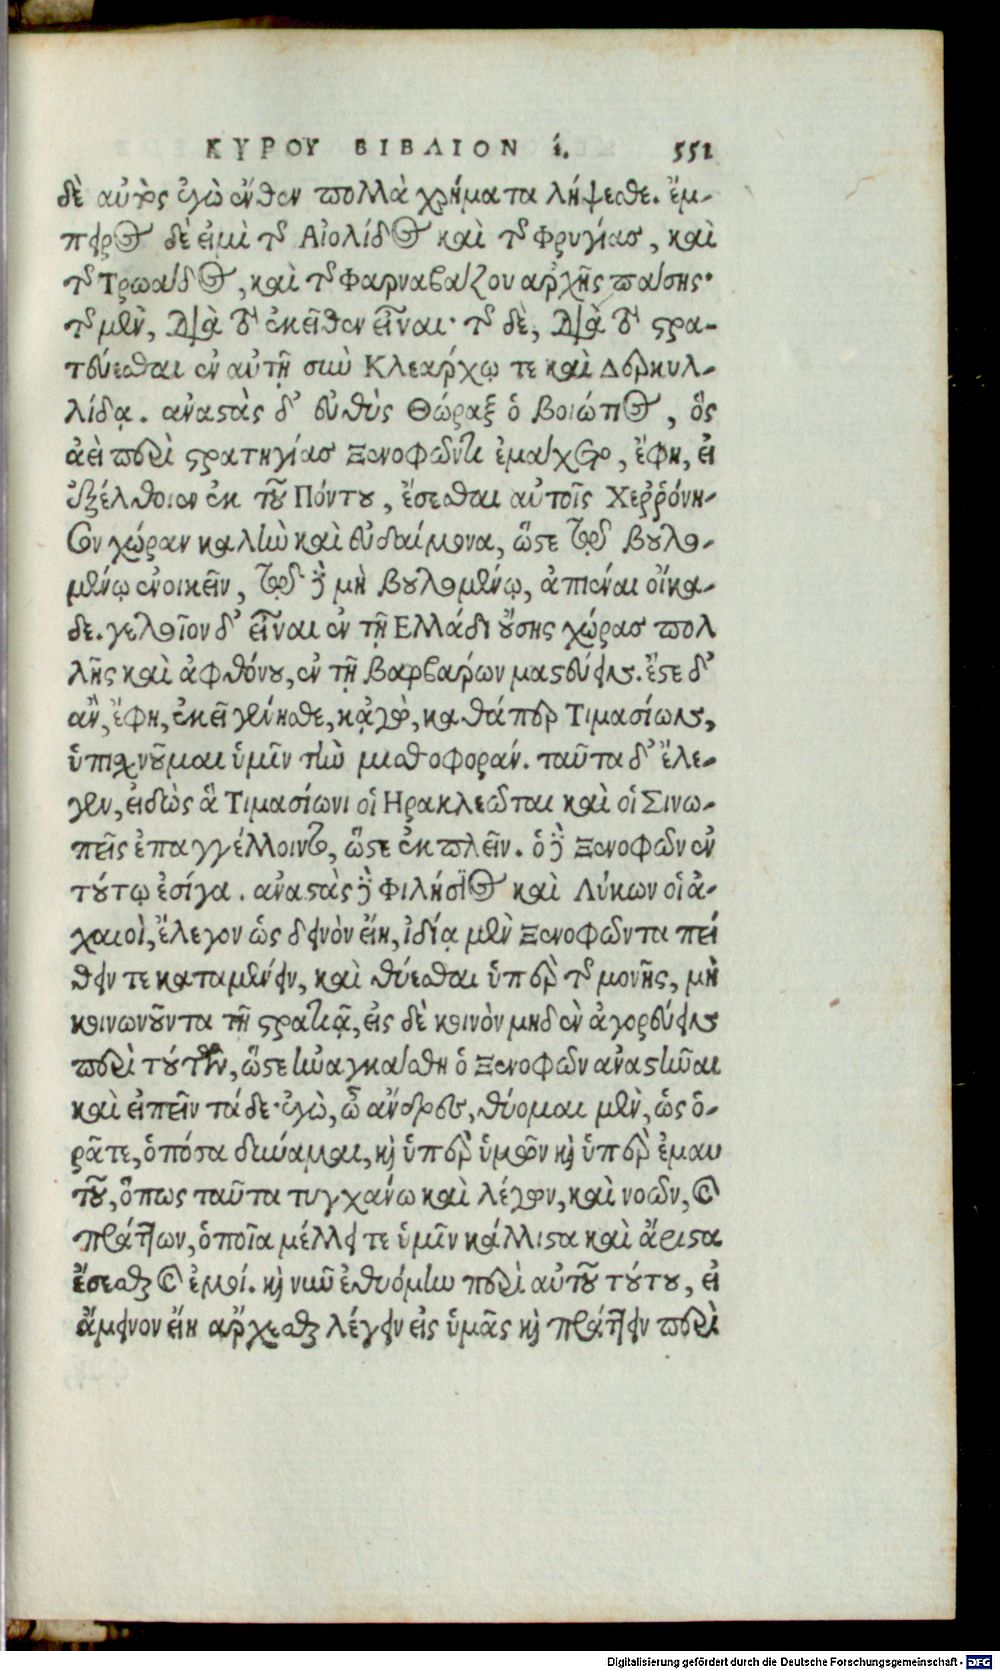 ΚΥΡΟΥ ΒΙΒΛΙΟΝ ί. 551
δὲ αὐτὸς ἐγὼ ἔνθεν πολλὰ χρήματα λήψεσθε. ἔμ-
πειρος δὲ εἰμὶ τῆς Αἰολίδος καὶ τῆς Φρυγίας, καὶ
τῆς Τρωάδος, καὶ τῆς Φαρναβάζου ἀρχῆς πάσης·
τῆς μὲν, διὰ τὸ ἐκεῖθεν εἶναι· τῆς δὲ, διὰ τὸ στρα-
τεύεσθαι ἐν αὐτῇ σὺν Κλεάρχῳ τε καὶ Δερκυλ-
λίδᾳ. ἀναστὰς δ' εὐθὺς Θώραξ ὁ βοιώτιος, ὃς
ἀεὶ περὶ στρατηγίας Ξενοφῶντι ἐμάχετο, ἔφη, εἰ
ἐξέλθοιεν ἐκ τοῦ Πόντου, ἔσεσθαι αὐτοῖς Χεῤῥόνη-
σον χώραν καλὴν καὶ εὐδαίμονα, ὥστε τῷ βουλο-
μένῳ ἐνοικεῖν, τῷ δὲ μὴ βουλομένῳ, ἀπιέναι οἴκα-
δε. γελοῖον δ' εἶναι ἐν τῇ Ἑλλάδι οὔσης χώρας πολ
λῆς καὶ ἀφθόνου, ἐν τῇ βαρβάρων μαστεύειν. ἔστε δ'
ἂν, ἔφη, ἐκεῖ γένησθε, κᾀγὼ, καθάπερ Τιμασίων,
ὑπισχνοῦμαι ὑμῖν τὴν μισθοφοράν. ταῦτα δ' ἔλε-
γεν, εἰδὼς ἃ Τιμασίωνι οἱ Ηρακλεῶται καὶ οἱ Σινω-
πεῖς ἐπαγγέλλοιντο, ὥστε ἐκπλεῖν. ὁ δὲ Ξενοφῶν ἐν
τούτῳ ἐσίγα. ἀναστὰς δὲ Φιλήσιος καὶ Λύκων οἱ ἀ-
χαιοὶ, ἔλεγον ὡς δεινὸν εἴη, ἰδίᾳ μὲν Ξενοφῶντα πεί
θειν τε καταμένειν, καὶ θύεσθαι ὑπὲρ τῆς μονῆς, μὴ
κοινωνοῦντα τῇ στρατιᾷ, εἰς δὲ κοινὸν μηδὲν ἀγορεύειν
περὶ τούτων, ὥστε ἠναγκάσθη ὁ Ξενοφῶν ἀναστῆναι
καὶ εἰπεῖν τάδε· ἐγὼ, ὦ ἄνδρες, θύομαι μὲν, ὡς ὁ-
ρᾶτε, ὁπόσα δύναμαι, καὶ ὑπὲρ ὑμῶν καὶ ὑπὲρ ἐμαυ
τοῦ, ὅπως ταῦτα τυγχάνω καὶ λέγων, καὶ νοῶν, καὶ
πράττων, ὁποῖα μέλλει τε ὑμῖν κάλλιστα καὶ ἄριστα
ἔσεσθαι καὶ ἐμοί. καὶ νῦν ἐθυόμην περὶ αὐτοῦ τούτου, εἰ
ἄμεινον εἴη ἄρχεσθαι λέγειν εἰς ὑμᾶς καὶ πράττειν περὶ
Digitalisierung gefördert durch die Deutsche Forschungsgemeinschaft - DFG